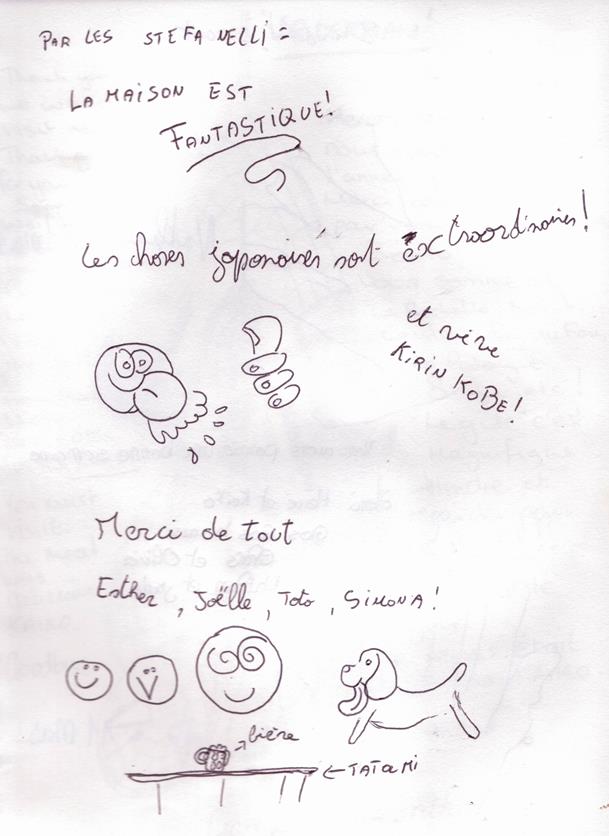 PAR LES STEFANELLI =
LA MAISON EST
FANTASTIQUE!
Les choses japonaires sont extraordinaires!
et vive
KIRIN KOBE!
Merci de tout
Esther, Joëlle, Toto, SIMONA!
bière
TATAMI